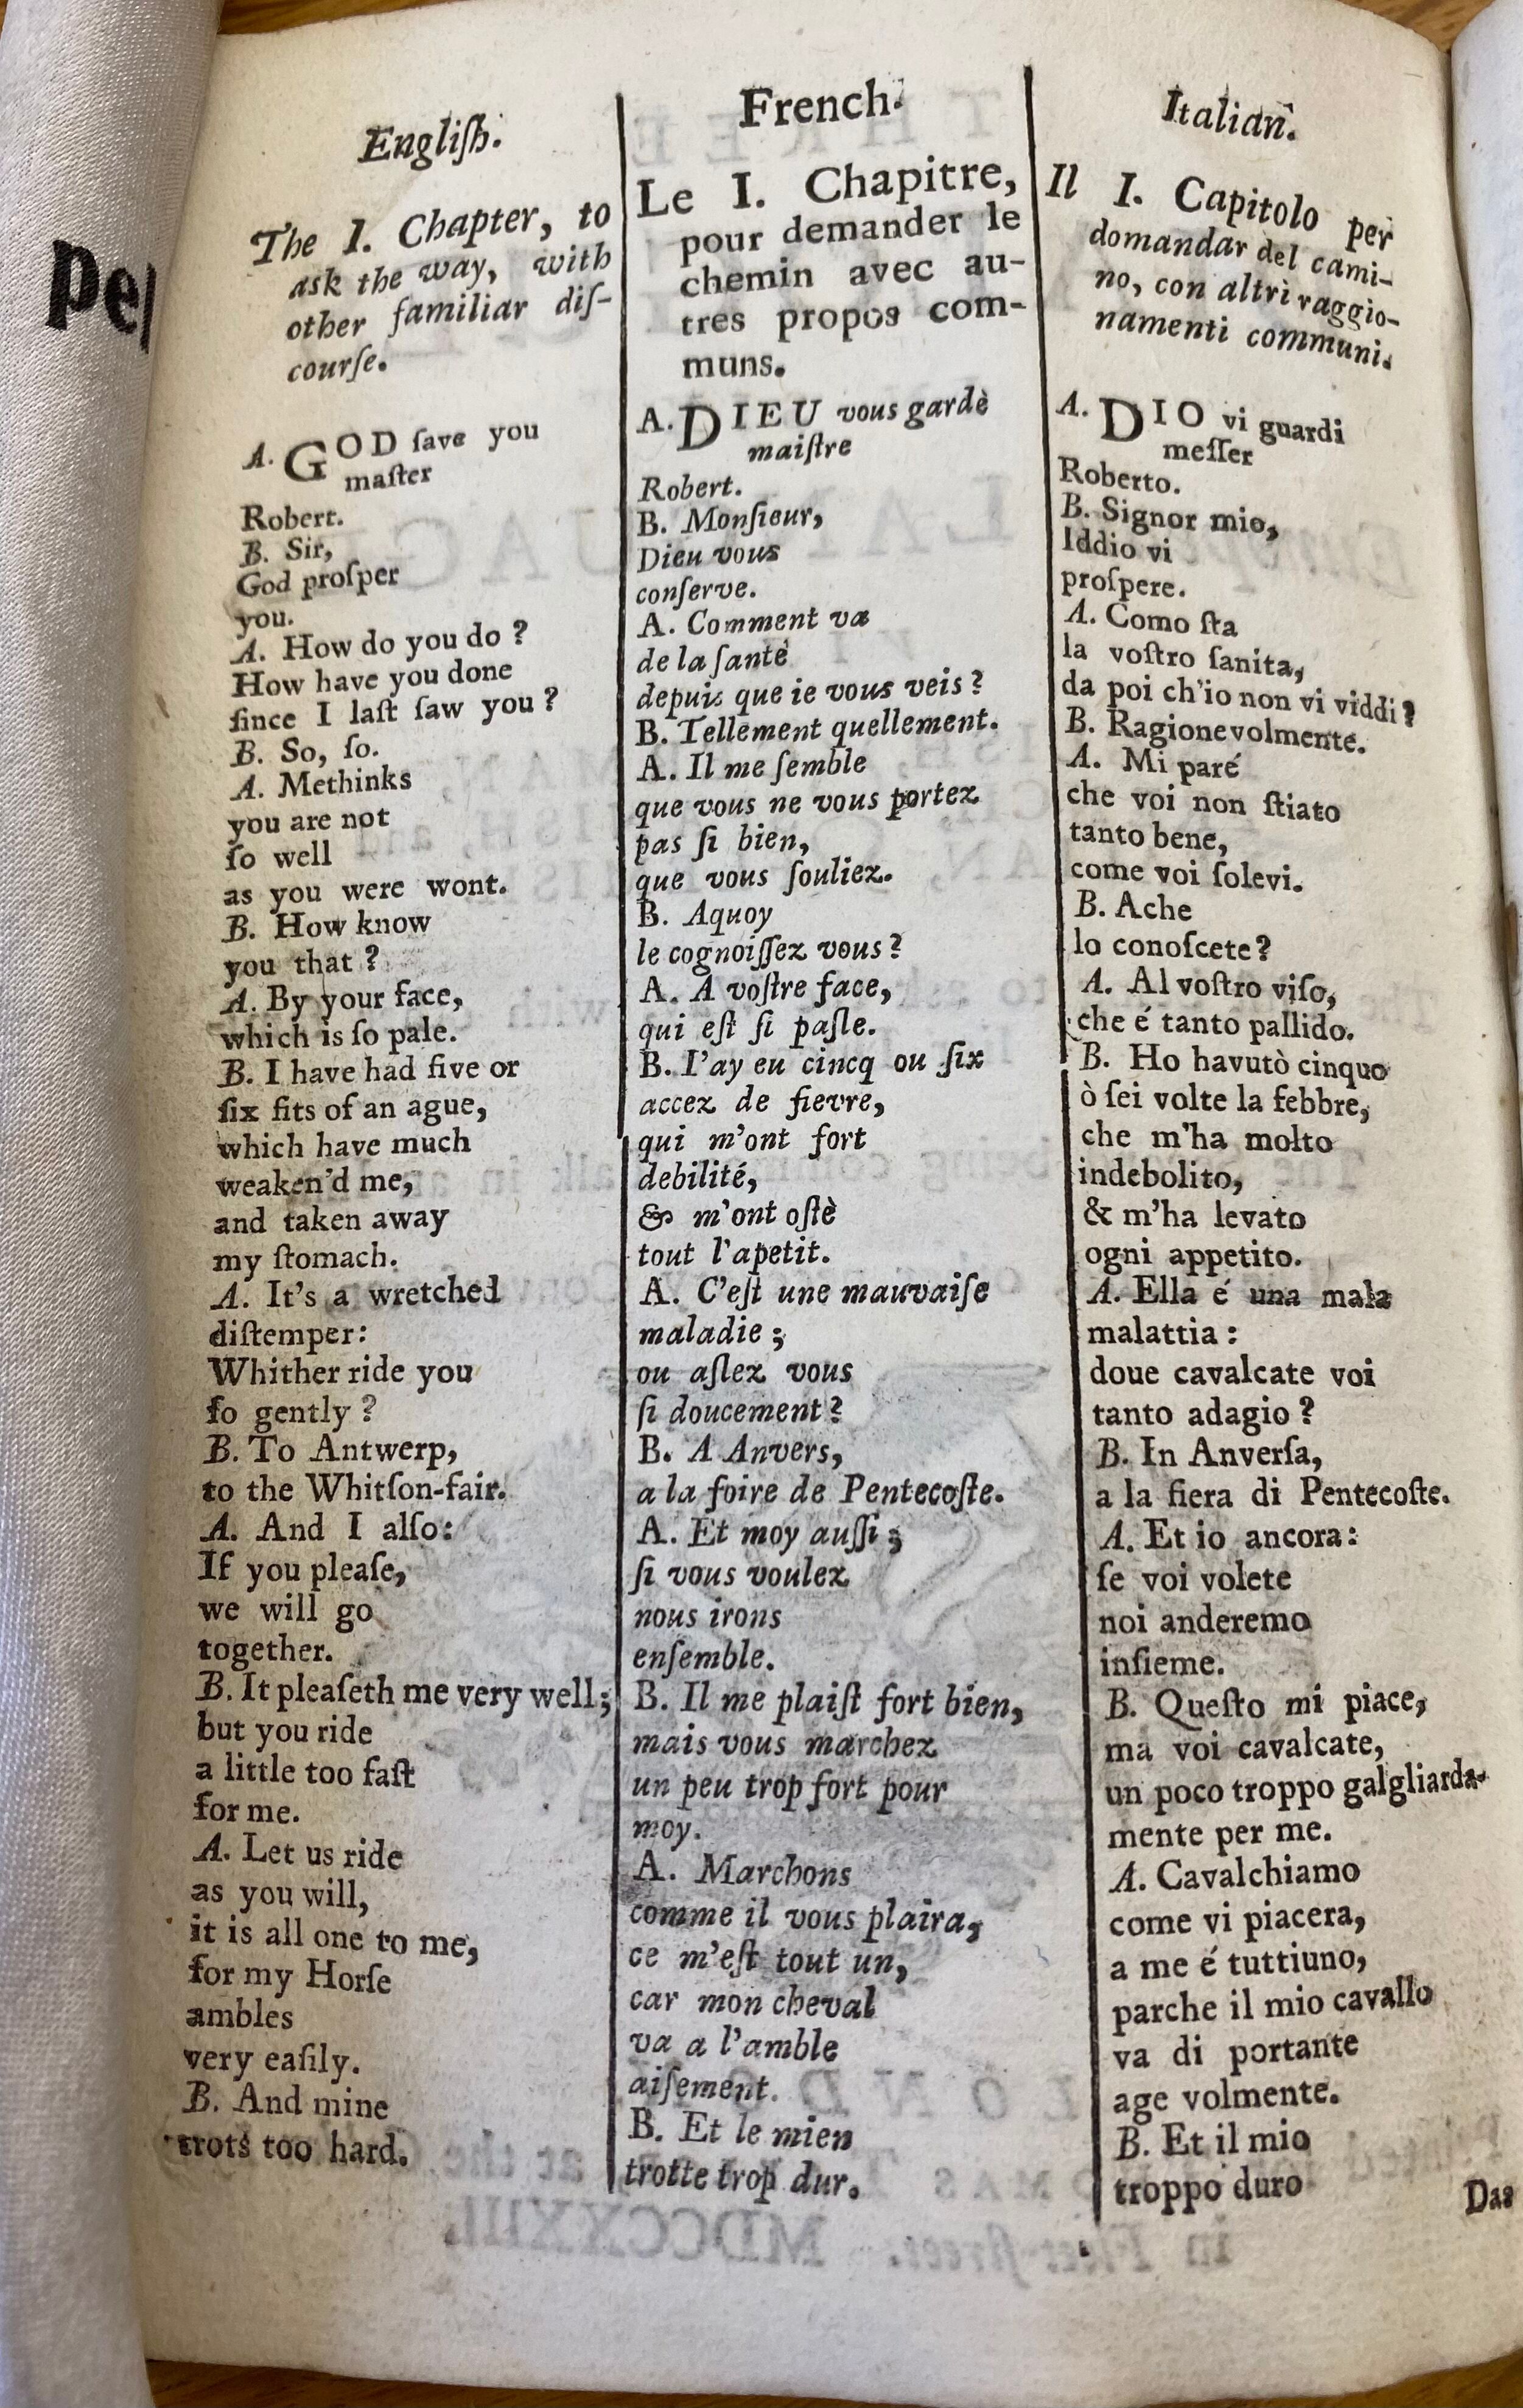 Engliſh.
The I. Chapter, to
ask the way, with
other familiar diſ-
courſe.
A. GOD ſave you
maſter
Robert.
B. Sir,
God proſper
you.
A. How do you do ?
How have you done
ſince I laſt ſaw you ?
B. So, ſo.
A. Methinks
you are not
ſo well
as you were wont.
B. How know
you that ?
A. By your face,
which is ſo pale.
B. I have had five or
ſix fits of an ague,
which have much
weaken'd me,
and taken away
my ſtomach.
A. It's a wretched
diſtemper:
Whither ride you
ſo gently ?
B. To Antwerp,
to the Whitſon-fair.
A. And I alſo:
If you pleaſe,
we will go
together.
B. It pleaſeth me very well;
but you ride
a little too faſt
for me.
A. Let us ride
as you will,
it is all one to me,
for my Horſe
ambles
very eaſily.
B. And mine
trots too hard.
French.
Le I. Chapitre,
pour demander le
chemin avec au-
tres propos com-
muns.
A. DIEU vous gardè
maiſtre
Robert.
B. Monſieur,
Dieu vous
conſerve.
A. Comment va
de la ſantè
depuis que ie vous veis ?
B. Tellement quellement.
A. Il me ſemble
que vous ne vous portez
pas ſi bien,
que vous ſouliez.
B. Aquoy
le cognoiſſez vous ?
A. A voſtre face,
qui eſt ſi paſle.
B. I'ay eu cincq ou ſix
accez de fievre,
qui m'ont fort
debilité,
& m'ont oſtè
tout l'apetit.
A. C'eſt une mauvaiſe
maladie ;
ou aſlez vous
ſi doucement ?
B. A Anvers,
a la foire de Pentecoſte.
A. Et moy auſſi ;
ſi vous voulez
nous irons
enſemble.
B. Il me plaiſt fort bien,
mais vous marchez
un peu trop fort pour
moy.
A. Marchons
comme il vous plaira,
ce m'eſt tout un,
car mon cheval
va a l'amble
aiſement.
B. Et le mien
trotte trop dur.
Italian.
Il I. Capitolo per
domandar del cami-
no, con altri raggio-
namenti communi.
A. DIO vi guardi
meſſer
Roberto.
B. Signor mio,
Iddio vi
proſpere.
A. Como ſta
la voſtro ſanita,
da poi ch'io non vi viddi ?
B. Ragionevolmente.
A. Mi paré
che voi non ſtiato
tanto bene,
come voi ſolevi.
B. Ache
lo conoſcete ?
A. Al voſtro viſo,
che é tanto pallido.
B. Ho havutò cinquo
ò ſei volte la febbre,
che m'ha molto
indebolito,
& m'ha levato
ogni appetito.
A. Ella é una mala
malattia :
doue cavalcate voi
tanto adagio ?
B. In Anverſa,
a la fiera di Pentecoſte.
A. Et io ancora:
ſe voi volete
noi anderemo
inſieme.
B. Queſto mi piace,
ma voi cavalcate,
un poco troppo galgliarda-
mente per me.
A. Cavalchiamo
come vi piacera,
a me é tuttiuno,
parche il mio cavallo
va di portante
age volmente.
B. Et il mio
troppo duro
Das